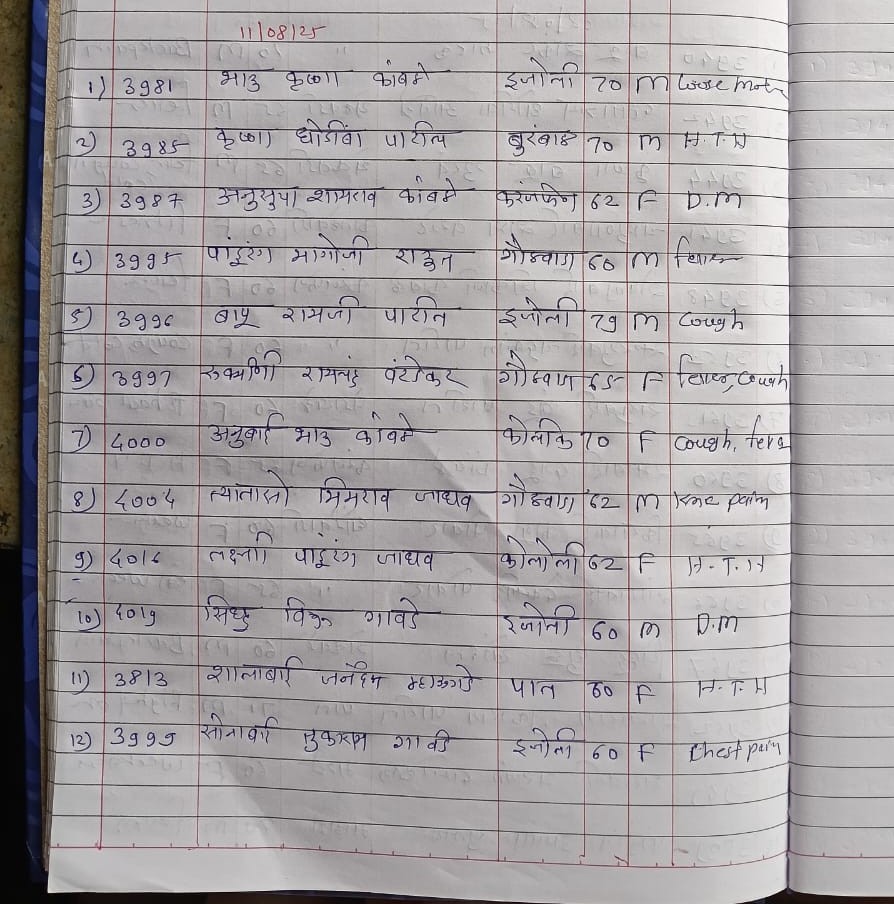 11/08/25
1) 3981 भाउ कृष्णा कांबळे इजोली 70 M Loose Motn
2) 3985 कृष्णा धोंडीबा पाटील बुरंबाळ 70 M H.T.H
3) 3987 अनुसुया शामराव कांबळे करंजफेण 62 F D.M
4) 3995 पांडूरंग भागोजी राऊत गौळवाडा 60 M fever
5) 3996 बापू रामजी पाटील इजोली 79 M Cough
6) 3997 रुक्मीणी रामचंद्र गौळवाडा 65 F fever, cough
7) 4000 अनुबाई भाउ कांबळे 70 F cough, feve
8) 4004 त्यातासो भिमराव जाधव गौळवाडा 62 M knee pain
9) 4016 लक्ष्मी पांडूरंग जाधव कोलोली 62 F H.T.H
10) 4019 सिधु विठ्ठल गावडे इजोली 60 M D.M
11) 3813 शालाबाई जनार्दन पात 60 F H.T.H
12) 3999 सोनाबाई तुकाराम गावडे इजोली 60 F Chest pain